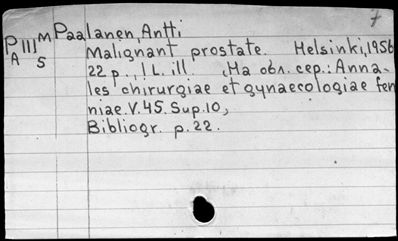 7
P III M Paalanen, Antti
A 5 Malignant prostate. Helsinki, 1956
22 p., 1 L. ill. (На обл. сер.: Anna-
les chirurgiae et gynaecologiae fen
niae. V. 45. Sup. 10,
Bibliogr. p. 22.